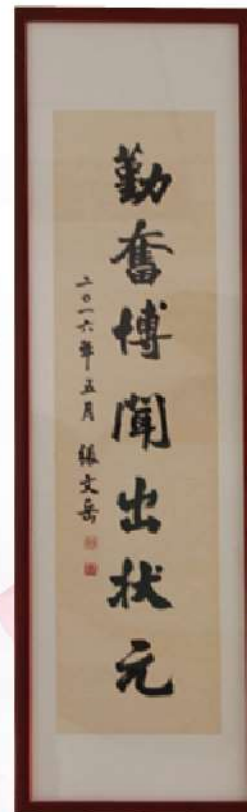 勤奮博聞出狀元
二〇一六年五月 張文岳